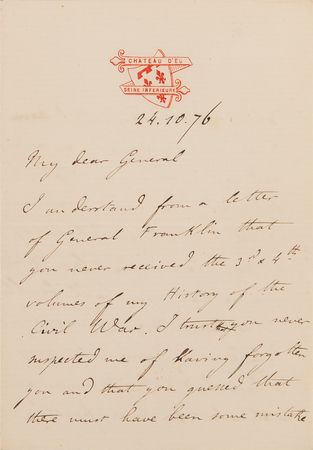 CHATEAU D'EU
SEINE INFERIEURE
24.10.76
My dear General
I understand from a letter
of General Franklin that
you never received the 3d & 4th
volumes of my History of the
Civil War. I trust you never
suspected me of having forgotten
you and that you guessed that
there must have been some mistake